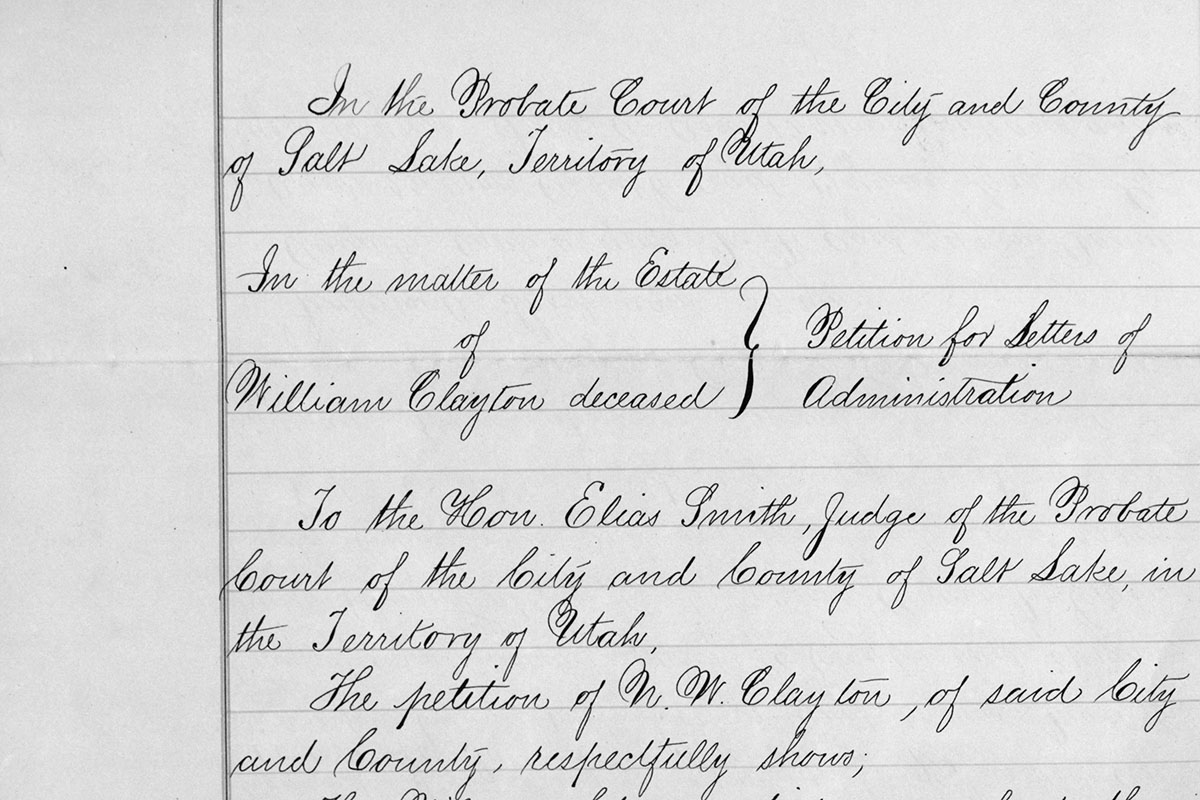 In the Probate Court of the City and County
of Salt Lake, Territory of Utah,
In the matter of the Estate
of
William Clayton deceased
} Petition for Letters of
Administration
To the Hon. Elias Smith, Judge of the Probate
Court of the City and County of Salt Lake, in
the Territory of Utah,
The petition of N. W. Clayton, of said City
and County, respectfully shows;